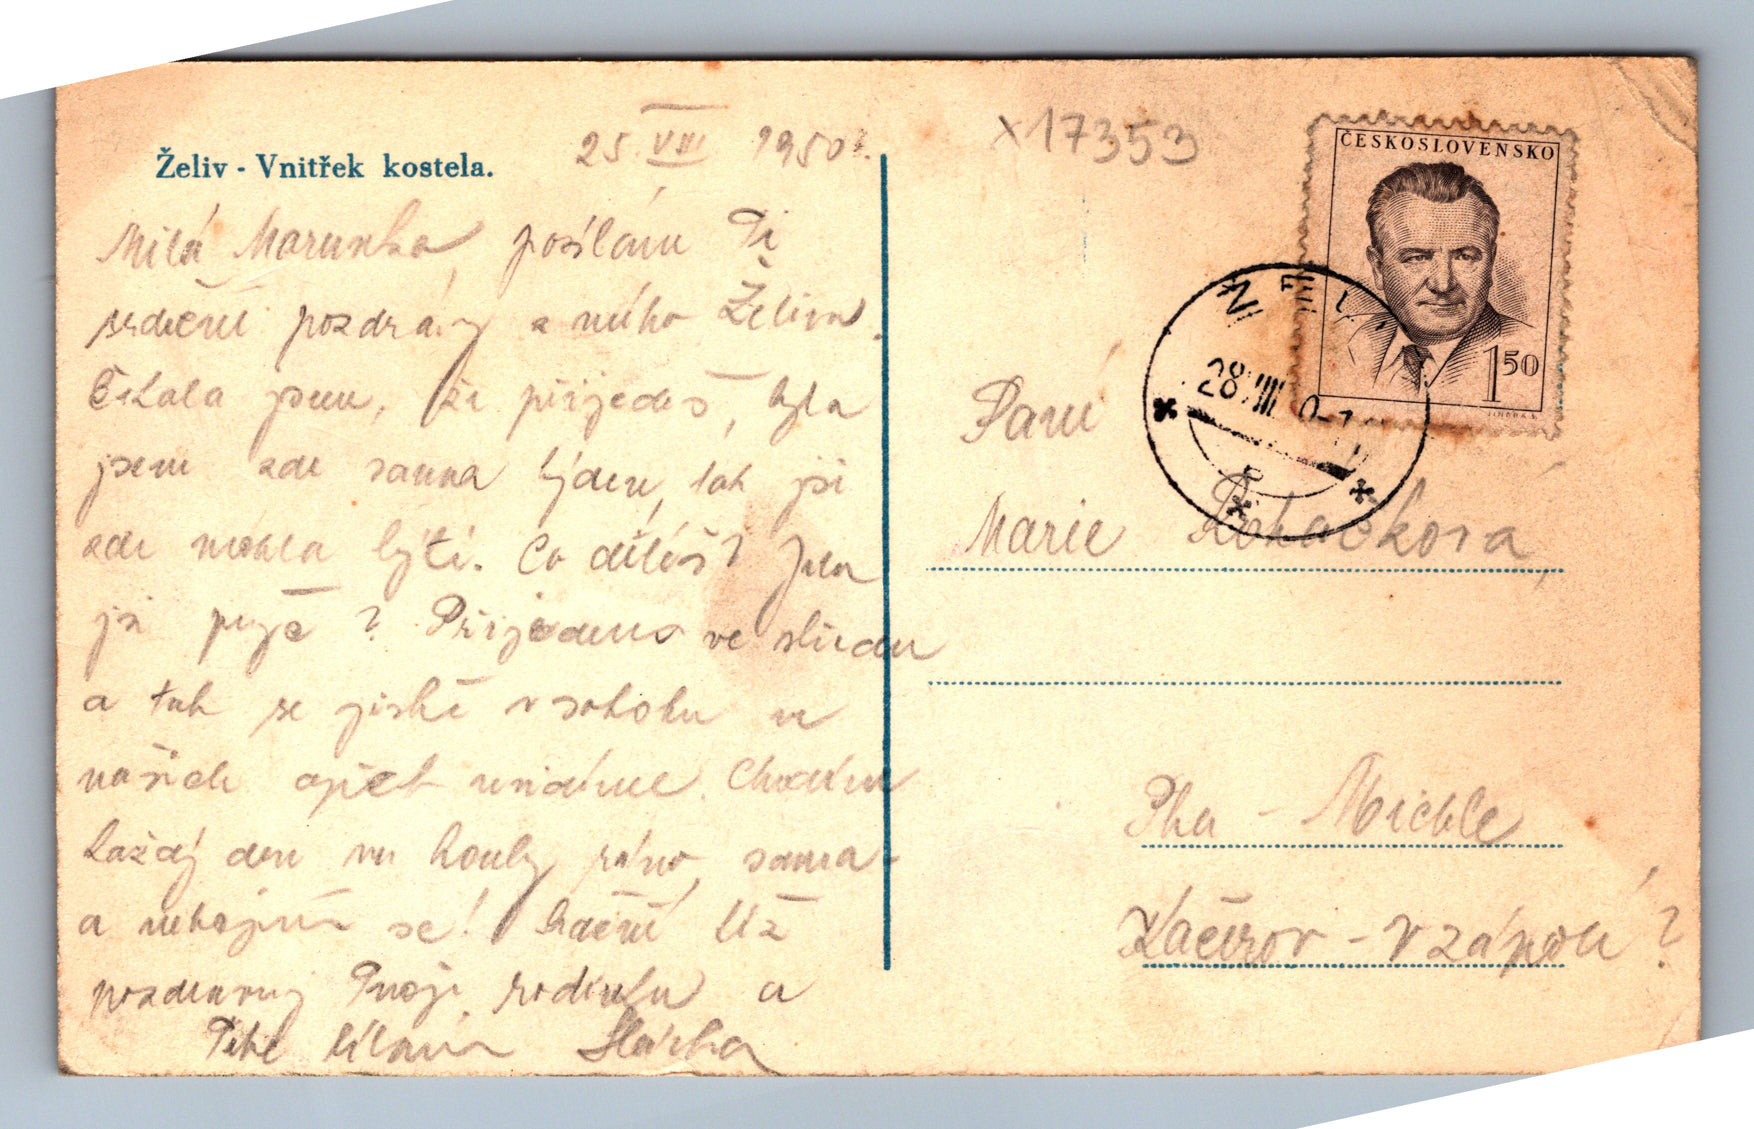 Želiv - Vnitřek kostela.
25 VIII 1950.
x 17353
ČESKOSLOVENSKO
1 50
28 VIII
Milá Maruško, posílám Ti
srdečné pozdravy z mého Želiva.
Čekala jsem, že přijedeš, byla
jsem zde sama týden, tak jsi
zde mohla býti. Co děláš? Jela
jsi pryč? Přijedeme ve středu
a tak se jistě v sobotu u
našich opět uvidíme. Chodím
každý den na houby ráno, sama
a nebojím se! Srdečně Už
pozdravuj Tvoji rodinku a
Tebe líbám
Paní
Marie
Pha - Michle
Kačerov - v zápolí ?